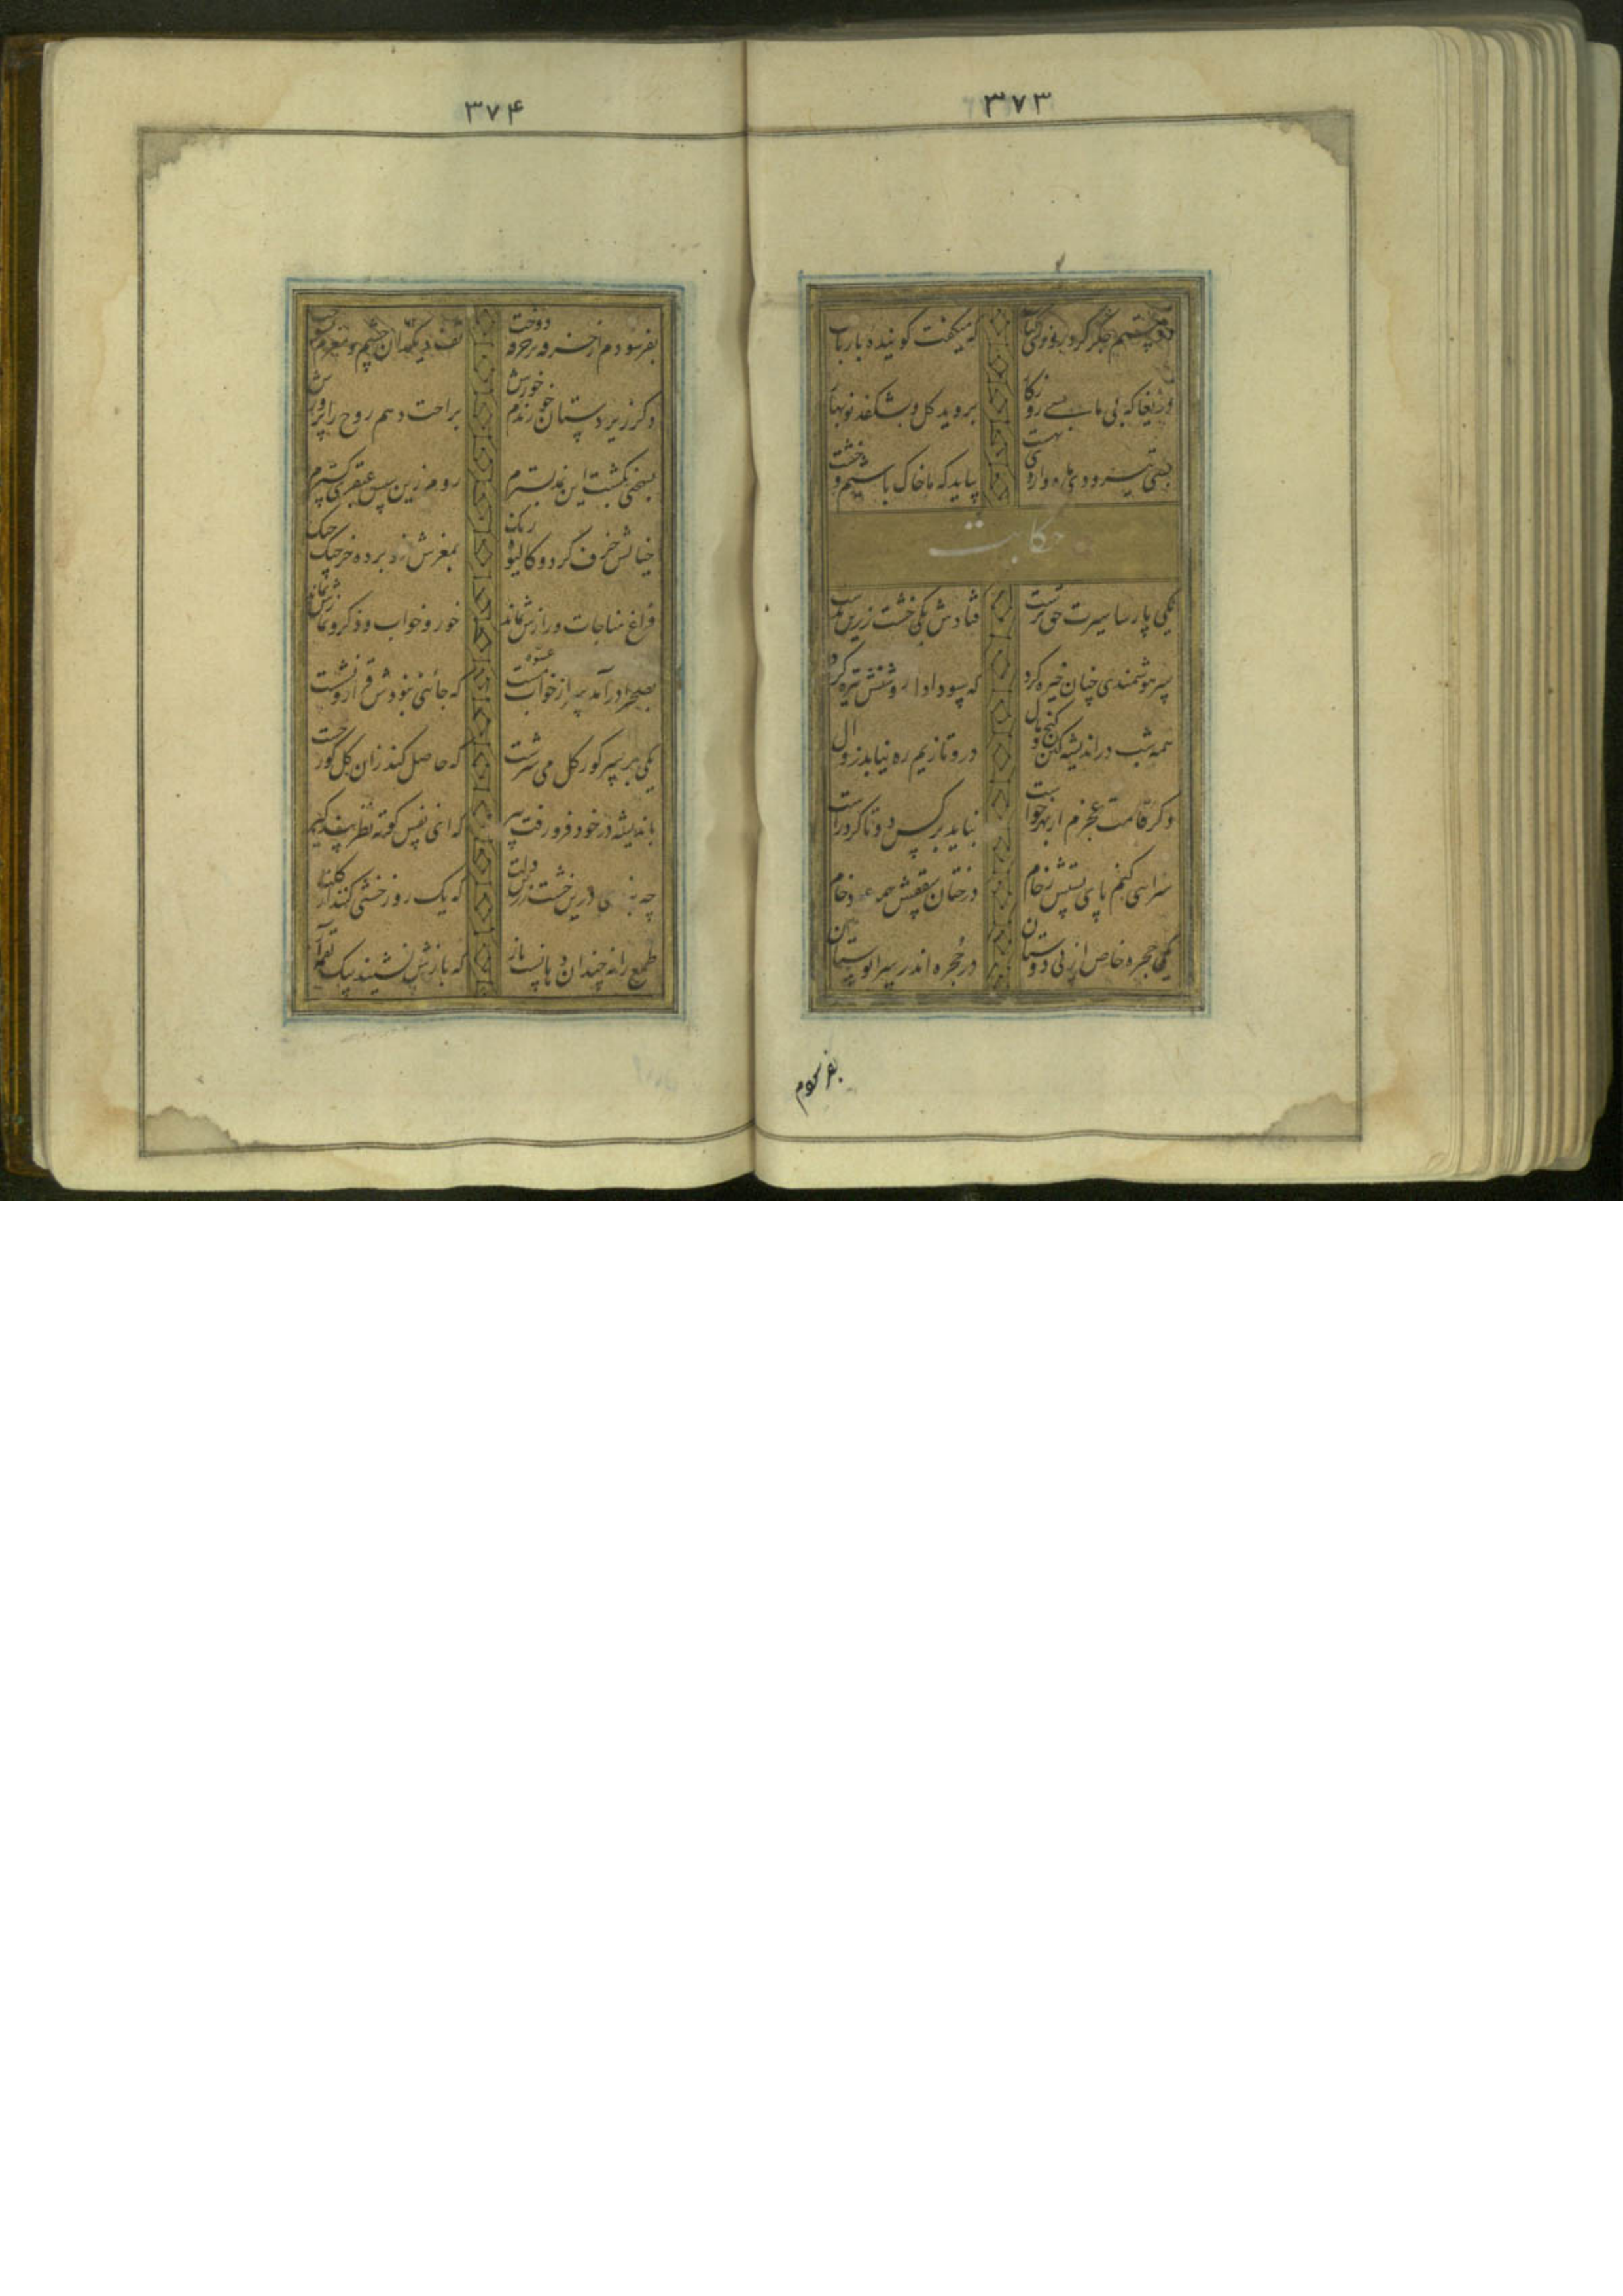 ۳۷۳
دو بیتم جگر کرد روزی کباب که میگفت گوینده با رباب
دریغا که بی ما بسی روزگار بروید گل و بشکفد نوبهار
بسی تیر و دی ماه و اردیبهشت بیاید که ما خاک باشیم و خشت
حکایت
یکی پارسا سیرت حق پرست فتادش یکی خشت زرین بدست
سر هوشمندی چنان خیره کرد که سودا دل روشنش تیره کرد
همه شب در اندیشه کین گنج و مال درو تا زیم ره نیابد زوال
دگر قامت عجزم از بهر خواست نباید بر کس دو تا کرد و راست
سرایی کنم پای بستش رخام درختان سقفش همه عود خام
یکی حجره خاص از پی دوستان در حجره اندر سرا بوستان
بفرسودم
۳۷۴
بفرسودم از خرقه بر خرقه دوخت تف دیگدان چشم و مغزم بسوخت
دگر زیر دستان پزندم خورش براحت دهم روح را پرورش
بسختی بکشت این نمد بسترم روم زین سپس عبقری گسترم
خیالش خرف کرد و کالیوه رنگ بمغزش فرو برده خرچنگ چنگ
فراغ مناجات و رازش نماند خور و خواب و ذکر و نمازش نماند
بصحرا در آمد سر از عشوه مست که جائی نبودش قرار نشست
یکی بر سر گور گل می سرشت که حاصل کند زان گل گور خشت
باندیشه در خود فرو رفت پیر که ای نفس کوته نظر پند گیر
چه بندی درین خشت زرین دلت که یک روز خشتی کنند از گلت
طمع را نه چندان دهانست باز که بازش نشیند بیک لقمه آز